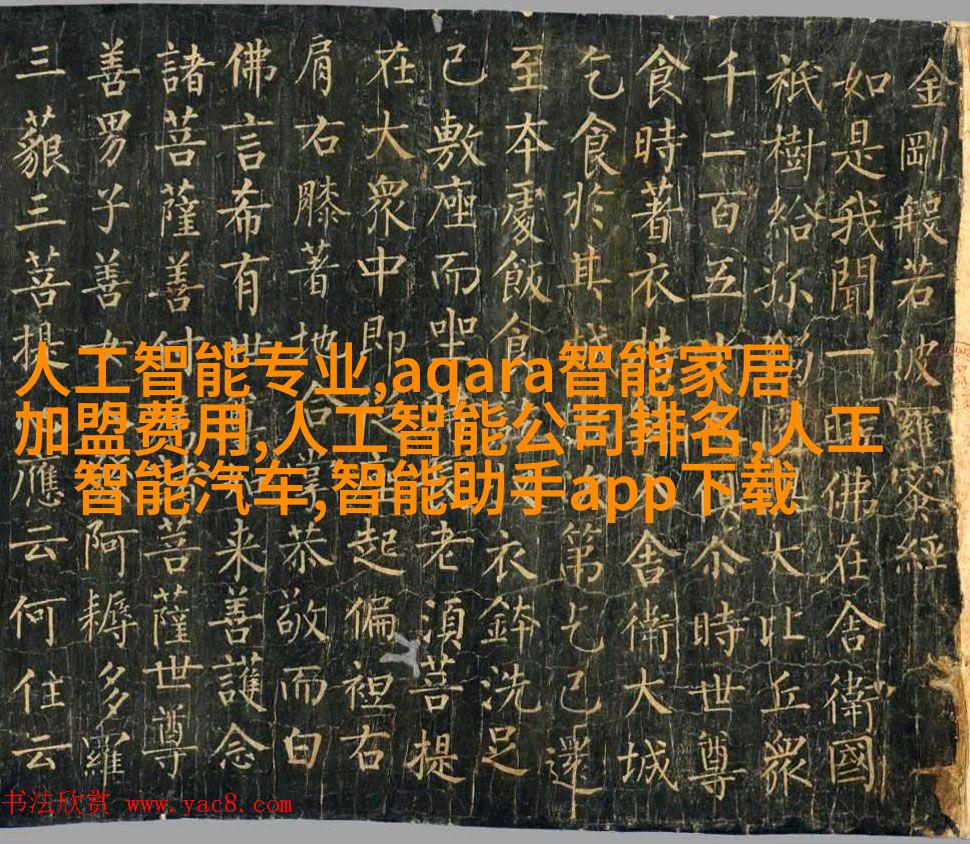 金剛般若波羅蜜經
如是我聞一時佛在舍衛國
祇樹給孤大比丘眾
千二百五尒時世尊
食時著衣舍衛大城
乞食於其城第乞已還
至本處飯食衣鉢洗足
已敷座而坐老須菩提
在大眾中即起偏袒右
肩右膝著地合恭敬而白
佛言希有世来善護念
諸菩薩善付諸菩薩世尊
善男子善女阿耨多羅
三藐三菩提應云何住云
人工智能专业,aqara智能家居
加盟费用,人工智能公司排名,人工
智能汽车,智能助手app下载
书法欣赏 www.yac8.com